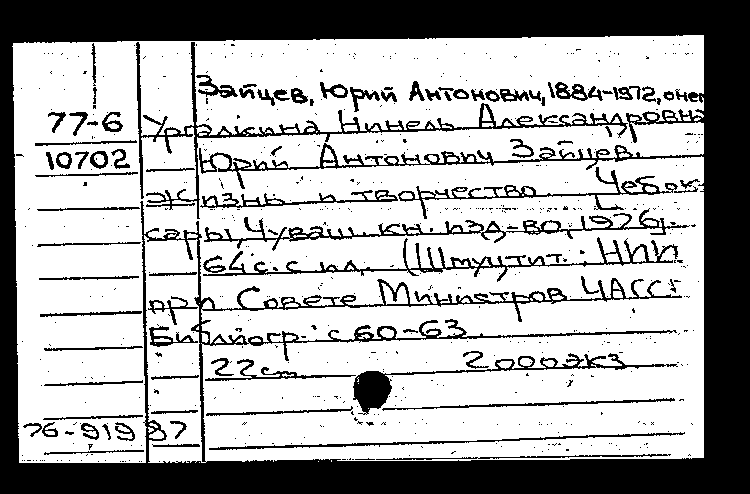 Зайцев, Юрий Антонович, 1884-1972, о нем
77-6 Ургалкина, Нинель Александровна
10702 Юрий Антонович Зайцев.
Жизнь и творчество. Чебок-
сары, Чуваш. кн. изд-во, 1976.
64 с. с ил. (Шмуцтит.: НИИ
при Совете Министров ЧАССР
Библиогр.: с 60-63.
22 см 2000 экз
76-919 87